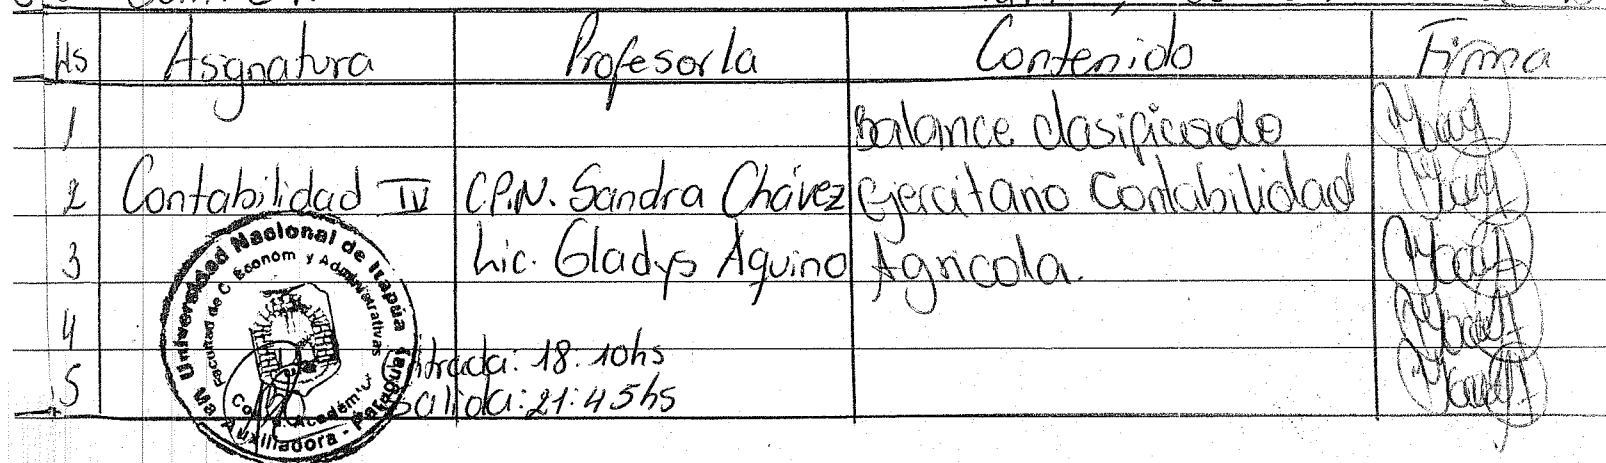 Hs Asignatura Profesor/a Contenido Firma
1 Balance clasificado
2 Contabilidad IV C.P.N. Sandra Chávez Ejercitario Contabilidad
3 Lic. Gladys Aquino Agricola.
4
Entrada: 18:10hs
5 Salida: 21:45hs
Universidad Nacional de Itapúa
Facultad de C. Económ y Administrativas
Académica
Ma Auxiliadora - Paraguay